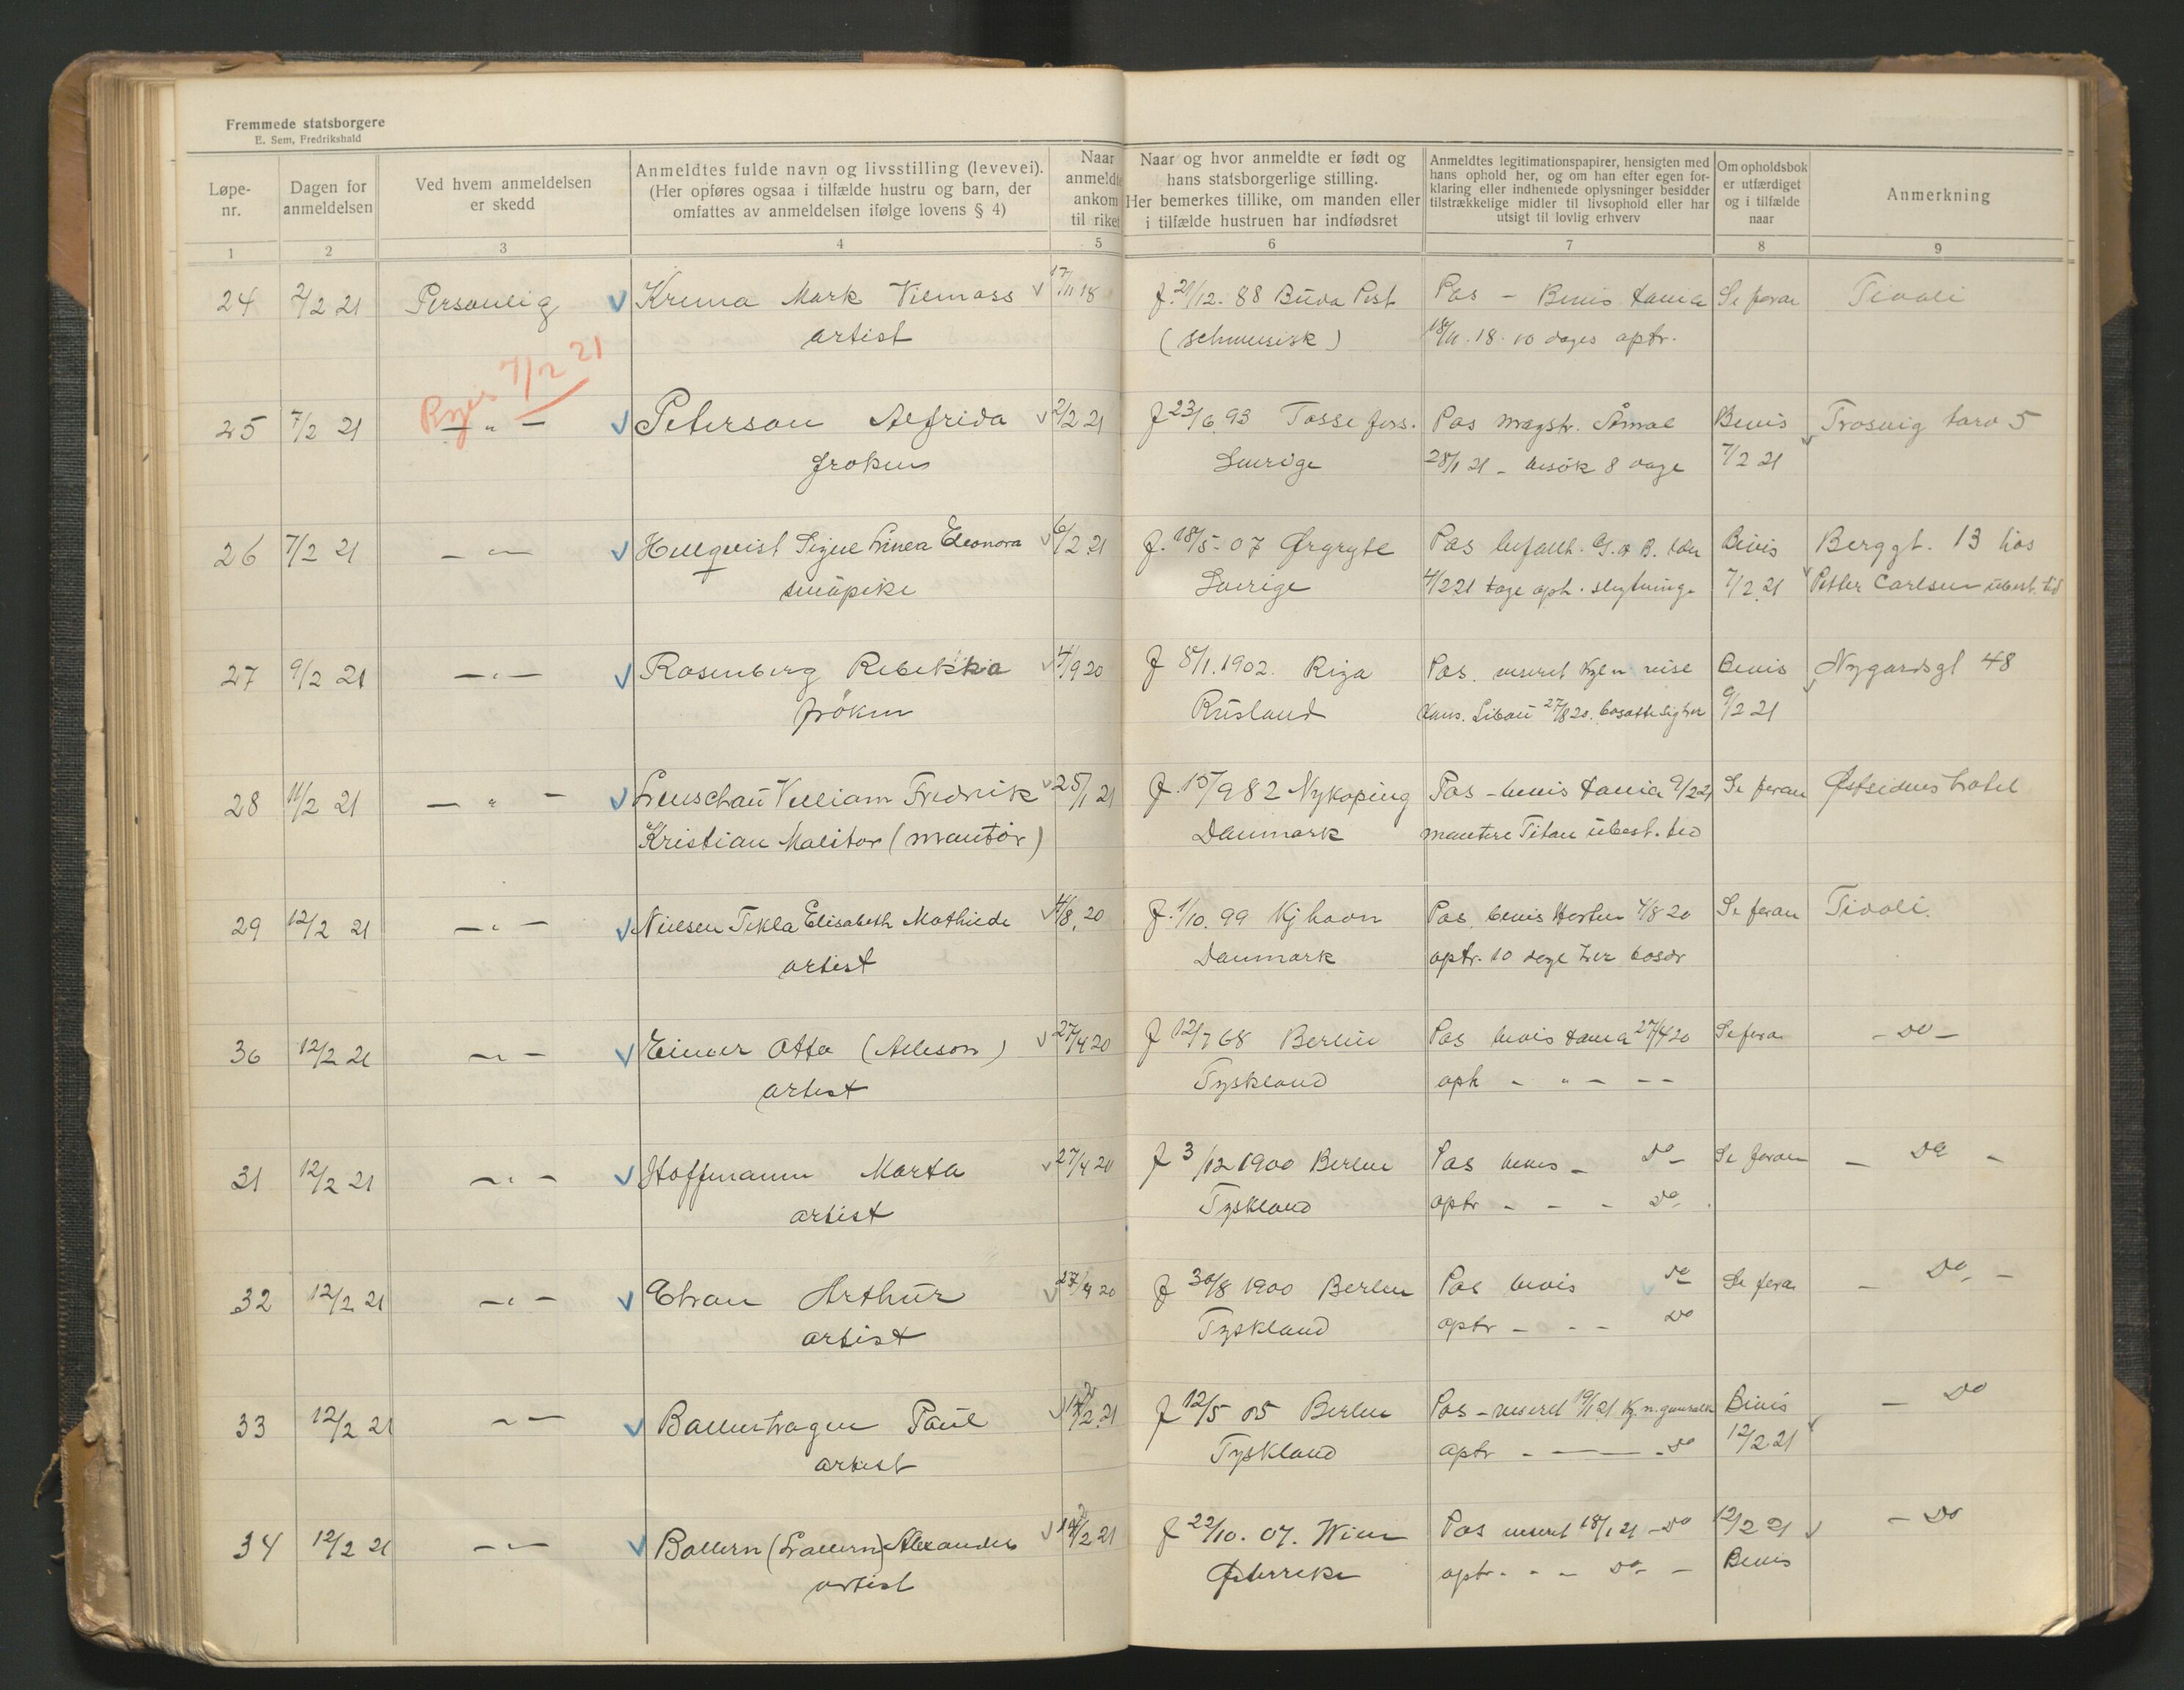 Fremmede statsborgere
E. Sem, Fredrikshald
Løpe-nr.
Dagen for anmeldelsen
Ved hvem anmeldelsen er skedd
Anmeldtes fulde navn og livsstilling (levevei).
(Her opføres ogsaa i tilfælde hustru og barn, der
omfattes av anmeldelsen ifølge lovens § 4)
Naar anmeldte ankom til riket
Naar og hvor anmeldte er født og
hans statsborgerlige stilling.
Her bemerkes tillike, om manden eller
i tilfælde hustruen har indfødsret
Anmeldtes legitimationspapirer, hensigten med
hans ophold her, og om han efter egen for-
klaring eller indhentede oplysninger besidder
tilstrækkelige midler til livsophold eller har
utsigt til lovlig erhverv
Om opholdsbok
er utfærdiget
og i tilfælde
naar
Anmerkning
1 2 3 4 5 6 7 8 9
24 2/2 21 Personlig Krema Mark 17/11 18 f. 21/12. 88 Buda Pest Pas - Bevis Se foran Tivoli
artist 18/11. 18. 10 dages optr.
7/2 21
25 7/2 21 - " - Peterson Alfrida 2/2 21 f 23/6 93 Tösse fors. Pas magstr. Åmål Bevis Trosvig torv 5
frøken Sverige 28/1 21 - besök 8 dage 7/2 21
26 7/2 21 - " - Hellqvist Signe Linea Eleonora 6/2 21 f. 18/5 - 07 Ørgryte Pas Bevis Berggt. 13 hos
småpike Sverige 4/2 21 7/2 21 Petter Carlsen ubest. tid
27 9/2 21 - " - Rosenberg Rebekka 4/9 20 f 8/1. 1902. Riga Pas. viseret Kgl. n. vise Bevis Nygardsgt 48
frøken Rusland kons. Libau 27/8 20. bosatte sig her 9/2 21
28 11/2 21 - " - Lenschau Villiam Fredrik 25/1 21 f. 15/9 82 Nykøping Pas - bevis 9/2 21 Se foran Østsidens hotel
Kristian Molitor (montør) Danmark montere Titan ubest. tid
29 12/2 21 - " - Nielsen Tekla Elisabeth Mathilde 4/8. 20 f. 1/10. 99 Kjhavn Pas. bevis Horten 4/8 20 Se foran Tivoli.
artist Danmark optr. 10 dage her
30 12/2 21 - " - Otto (Allison) 27/4 20 f 12/7 68 Berlin Pas bevis 27/4 20 Se foran - Do -
artist Tyskland opt - " - - -
31 12/2 21 - " - Hoffmann Marta 27/4 20 f 3/12 1900 Berlin Pas bevis - Do - Se foran - Do -
artist Tyskland optr - - - Do.
32 12/2 21 - " - Arthur 27/4 20 f 30/8 1900 Berlin Pas bevis Do Se foran - Do. -
artist Tyskland optr - - - Do
33 12/2 21 - " - Ballenhagen Paul 12/2 21 f 12/5 05 Berlin Pas - viseret 19/1 21 Bevis - Do
artist Tyskland optr - - - Do 12/2 21
34 12/2 21 - " - Ballern Alexander 12/2 21 f 22/10. 07. Wien Pas viseret 18/1 21 - Do 12/2 21 - Do
artist Østerrike optr. - - Do - Bevis